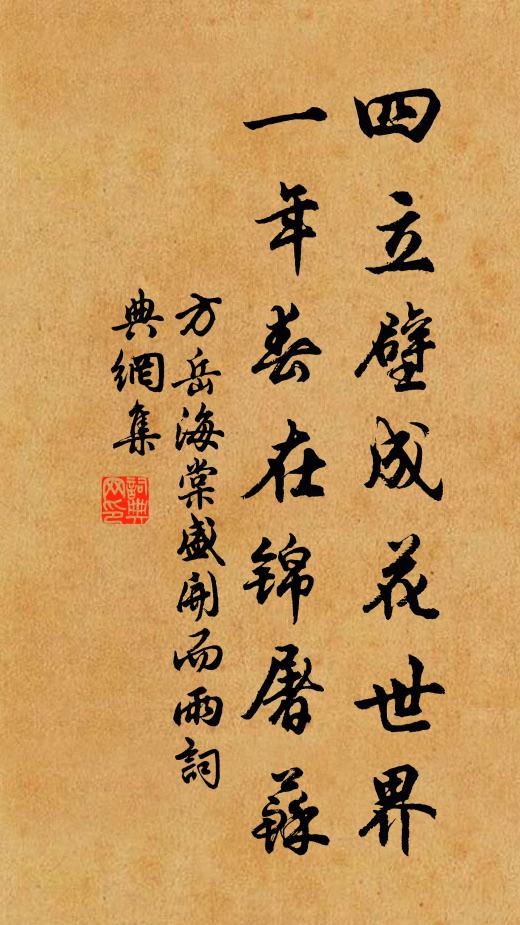 四立壁成花世界
一年春在锦屠蘇
方岳海棠盛開而雨詞
典網集
詞典網印